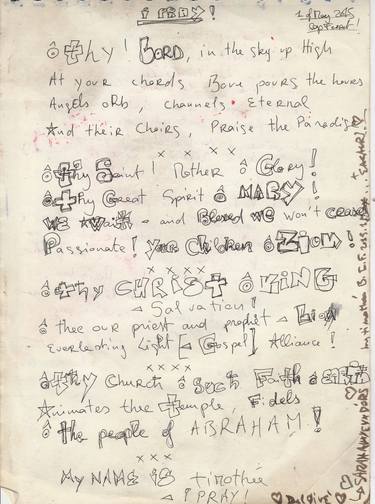 I PRAY!
1 of May 2015
ô thy! LORD, in the sky up High
At your chords Bove pours the hours
Angels orb, channels Eternal
And their Choirs, Praise the Paradise
x x x x
ô thy Saint! Mother ô Glory!
ô thy Great Spirit ô MARY!
WE Await and Blessed WE Won't cease
Passionate! your Children ô ZION!
x x x x
ô thy CHRIST ô KING
Salvation!
ô thee our priest and prophet Lion
Everlasting Light [Gospel] Alliance!
x x x x
ô thy Church ô Such Faith
Animates the temple, Fidels
ô the people of ABRAHAM!
x x x x
My NAME IS timothée
I PRAY!